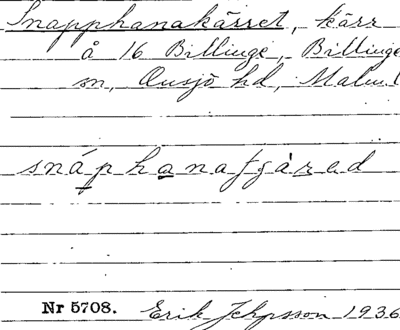 Snapphanakärret, kärr
å 16 Billinge, Billinge
sn, Onsjö hd, Malm.
snáphanatgàrad
Nr 5708. Erik 1936